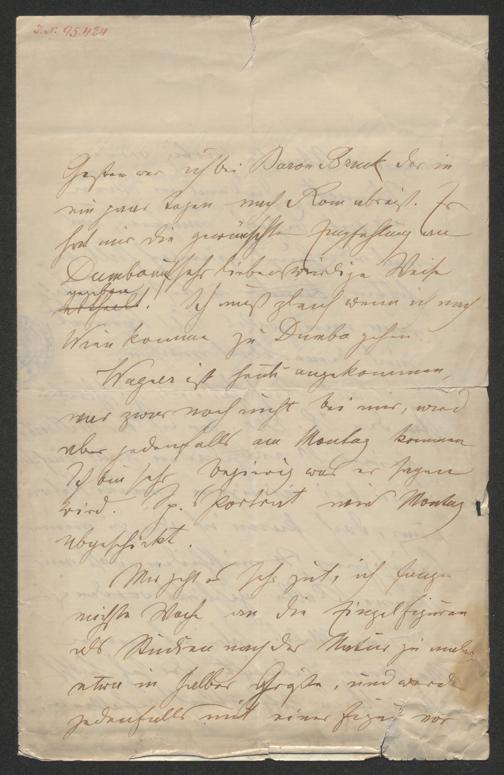 I.N. 95.424
Gestern war ich bei Baron Bruck der in
ein paar Tagen nach Rom abreist. Er
hat mir die gewünschte Empfehlung an
Dumba auf sehr liebenswürdige Weise
gegeben
ertheilt! Ich muß gleich wenn ich nach
Wien komme zu Dumba gehen.
Wagner ist heute angekommen,
war zwar noch nicht bei mir, wird
aber jedenfalls am Montag kommen
Ich bin sehr begierig was er sagen
wird. Portrait wird Montag
abgeschickt.
Mir geht es sehr gut, ich fange
nächste Woche an die Einzelfiguren
als Studien nach der Natur zu malen
etwa in halber Größe, und werde
jedenfalls mit einer Figur vor